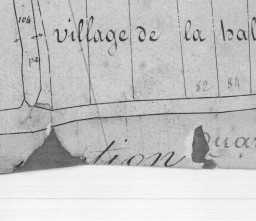 104
village de la hal
82 84
tion Quar